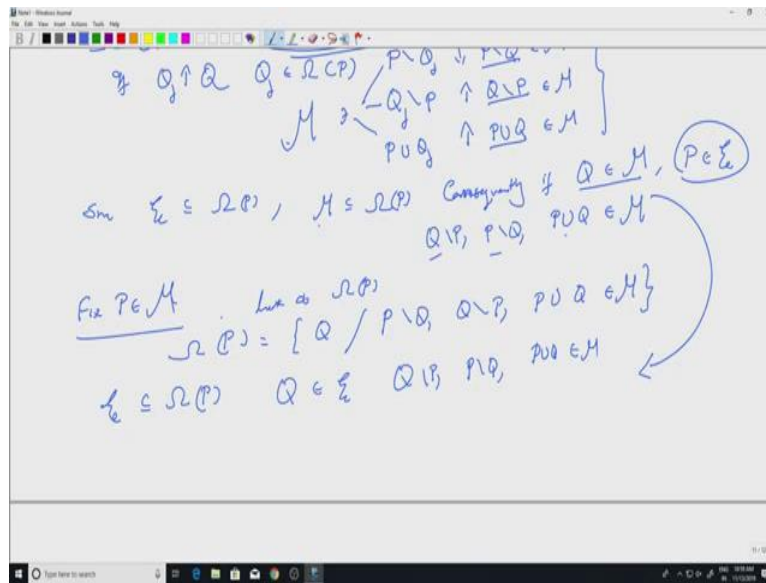 Note1 - Windows Journal
File Edit View Insert Actions Tools Help
P \ Q_j ↓ P\Q ∈ M
If Q_j ↑ Q Q_j ∈ Ω(P)
M ∋ Q_j \ P ↑ Q\P ∈ M
P ∪ Q_j ↑ P∪Q ∈ M
ξ ⊆ Ω(P), M ⊆ Ω(P) Consequently if Q ∈ M, P ∈ ξ
Q\P, P\Q, P∪Q ∈ M
Fix P ∈ M. Look at Ω(P)
Ω(P) = { Q / P\Q, Q\P, P∪Q ∈ M }
ξ ⊆ Ω(P) Q ∈ ξ Q\P, P\Q, P∪Q ∈ M
Type here to search